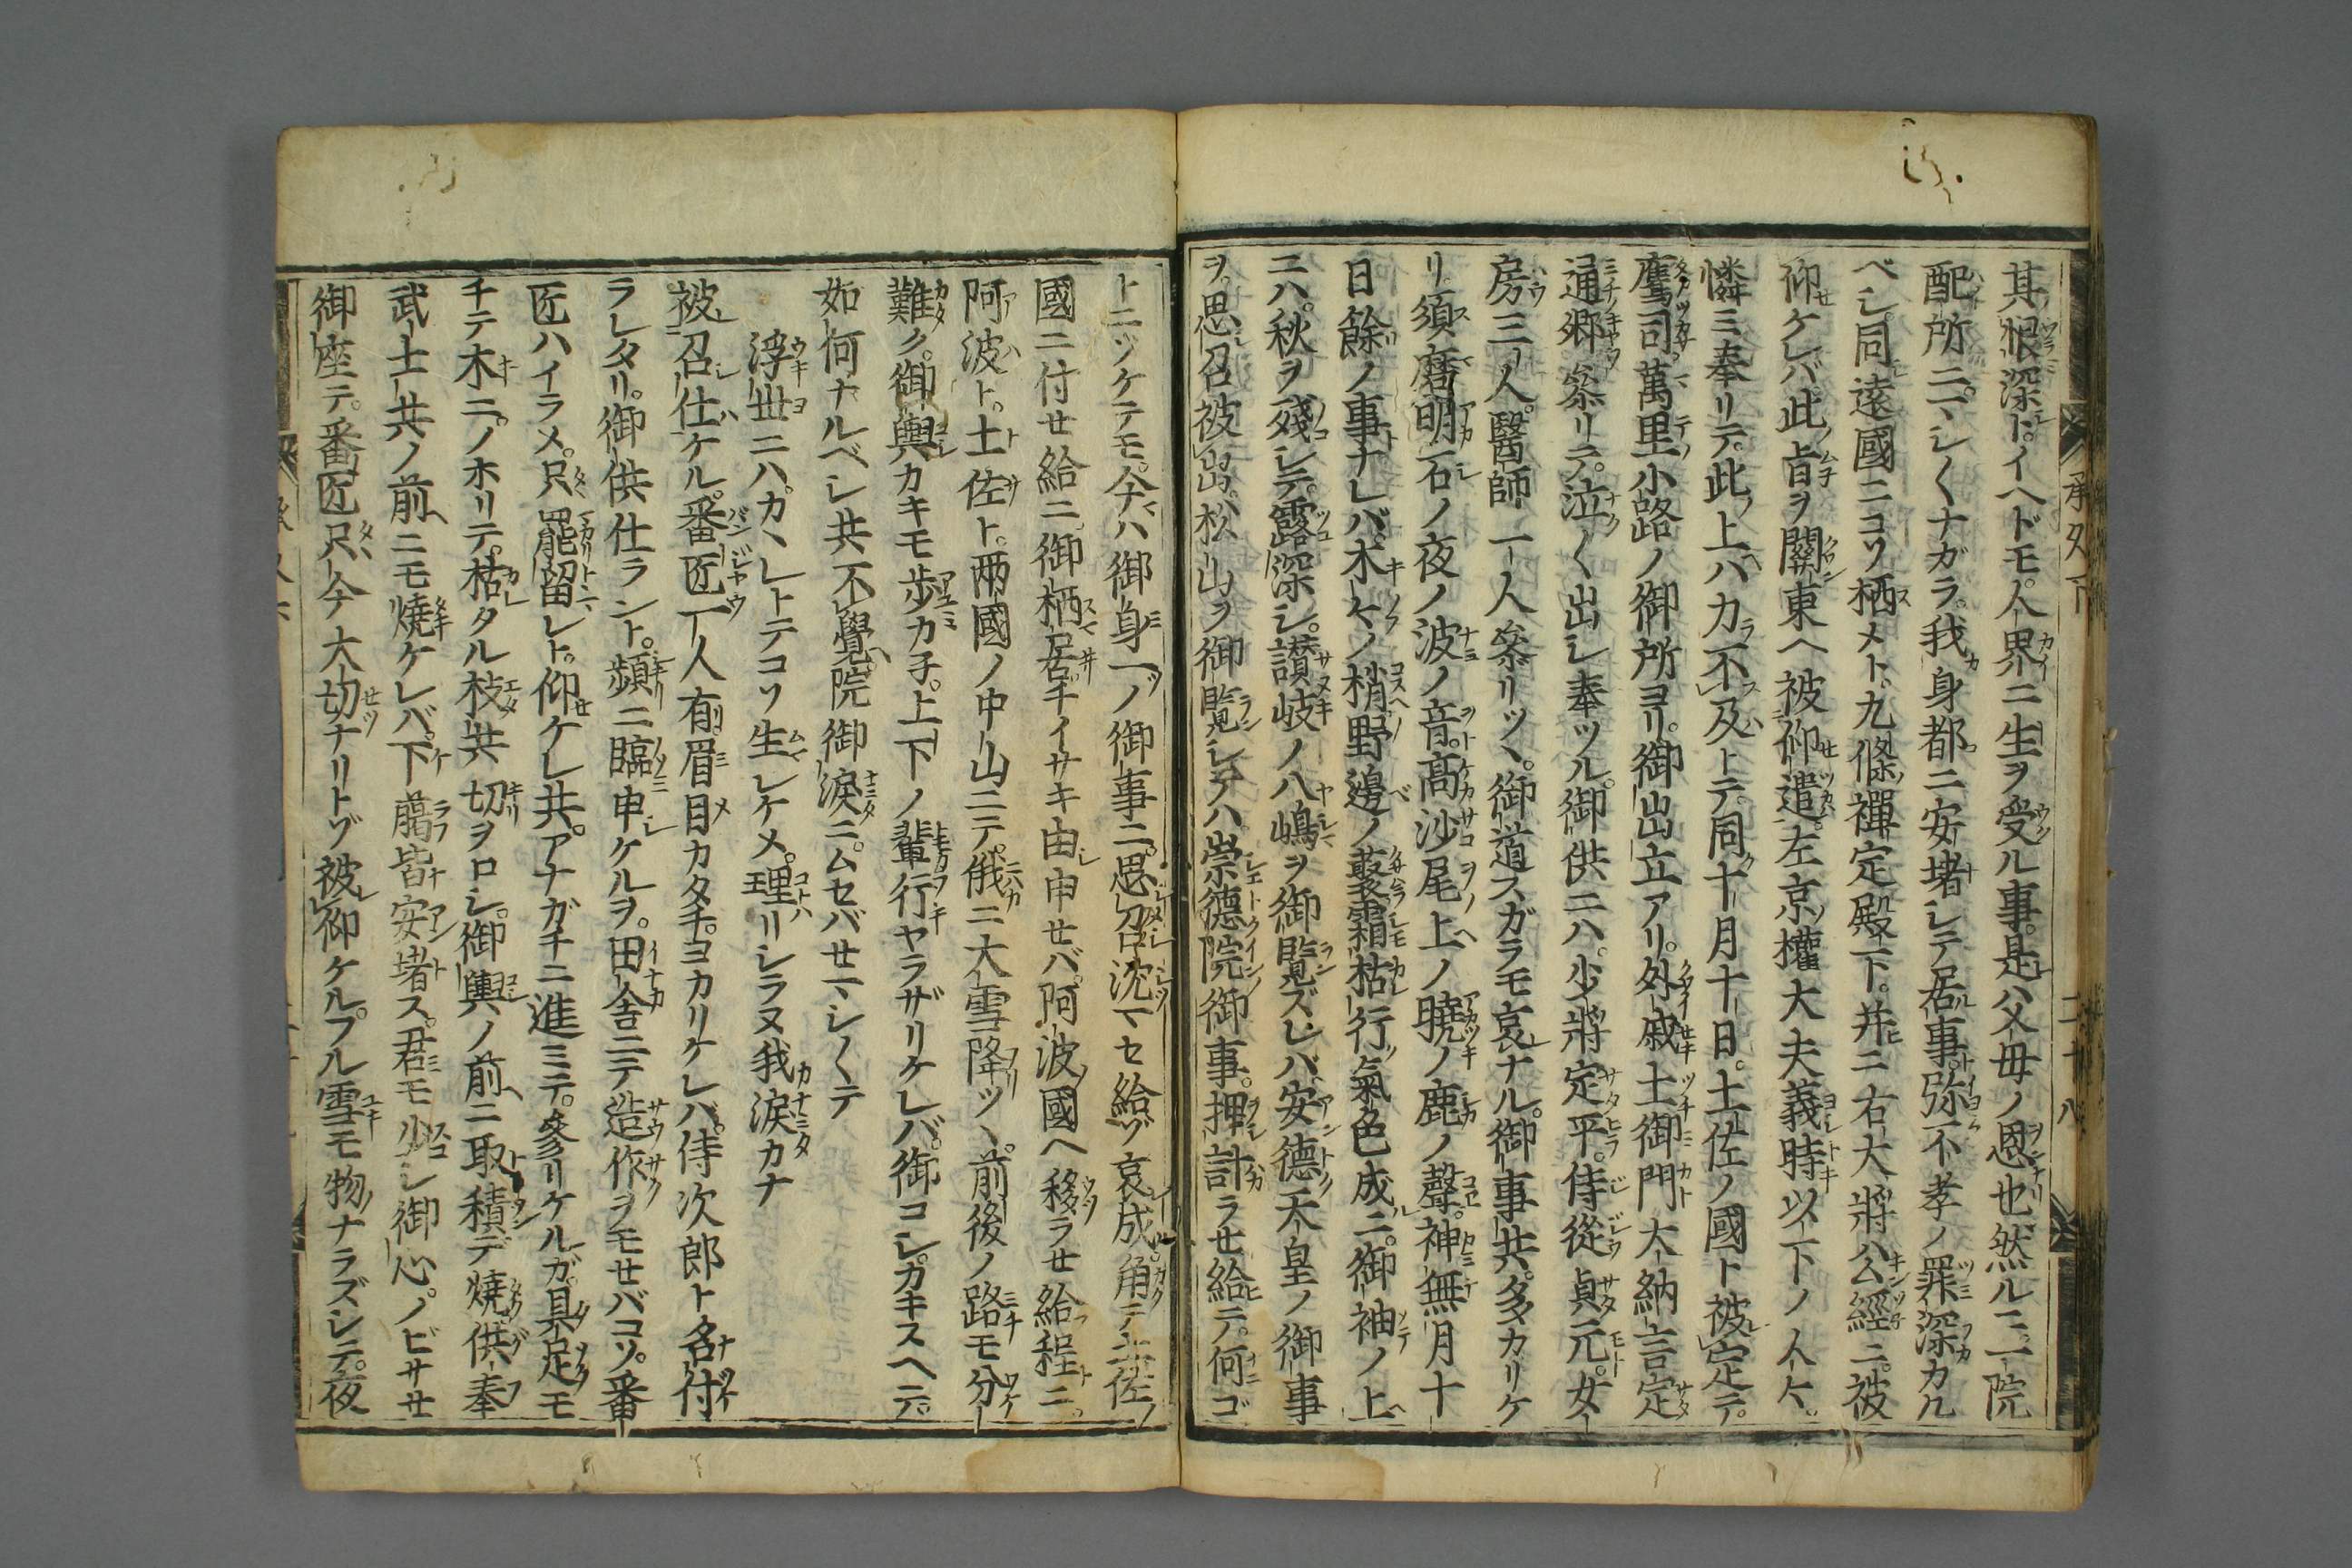 其恨深ト。イヘドモ。人界ニ生ヲ受ル事。是ハ父母ノ恩也然ルニ。一院
配所ニ。マシ〱ナガラ。我身都ニ安堵シテ居事。弥不孝ノ罪深カル
ベシ。同遠國ニコソ栖メト。九條禪定殿下。并ニ右大將公經ニ。被
仰ケレバ。此旨ヲ關東ヘ被仰遣。左京權大夫義時以下ノ人々。
憐ミ奉リテ。此上ハ力不及トテ。同十月十日。土佐ノ國ト被定テ。
鷹司萬里小路ノ御所ヨリ。御出立アリ。外戚土御門大納言定
通郷參リテ。泣〱出シ奉ツル。御供ニハ。少將定平。侍從貞元。女
房三人。醫師一人參リツヽ。御道スガラモ哀ナル。御事共。多カリケ
リ須磨明石ノ夜ノ波ノ音。高沙尾上ノ曉ノ鹿ノ聲。神無月十
日餘ノ事ナレバ。木々ノ梢野邊ノ叢霜枯行氣色成ニ。御袖ノ上
ニハ。秋ヲ殘シテ。露深シ。讃岐ノ八嶋ヲ御覧ズレバ。安德天皇ノ御事
ヲ。思召被出。松山ヲ御覧シテハ。崇德院御事。押計ラセ給テ。何ゴ
トニツケテモ。今ハ御身一ノ御事ニ。思召沈マセ給ヅ哀成。角テ土佐ノ
國ニ付セ給ニ御栖居チイサキ由申セバ。阿波國ヘ移ラセ給程ニ。
阿波ト。土佐ト。兩國ノ中山ニテ。俄ニ大雪降ツヽ。前後ノ路モ分
難ク。御輿カキモ歩カ子。上下ノ輩行ヤラザリケレバ。御コシカキスヘテ。
如何ナルベシ共不覺。院御涙ニ。ムセバセマシ〱テ
浮世ニハ。カヽレトテコソ生レケメ。理リシラヌ我涙カナ
被召仕ケル。番匠一人有。眉目カタチ。ヨカリケレバ。侍次郎ト名付
ラレタリ。御供仕ラント。頻ニ臨申ケルヲ。田舎ニテ造作ヲモセバコソ。番
匠ハイラメ。只罷留レト。仰ケレ共。アナガチニ進ミテ。參リケルガ。具足モ
チテ木ニ。ノホリテ。枯タル枝共切ヲロシ。御輿ノ前ニ取積デ燒供奉
武士共ノ前ニモ燒ケレバ。下﨟皆安堵ス。君モ少シ御心。ノビサセ
御座テ。番匠只今大切ナリトゾ被仰ケル。フル雪モ物ナラズシテ。夜